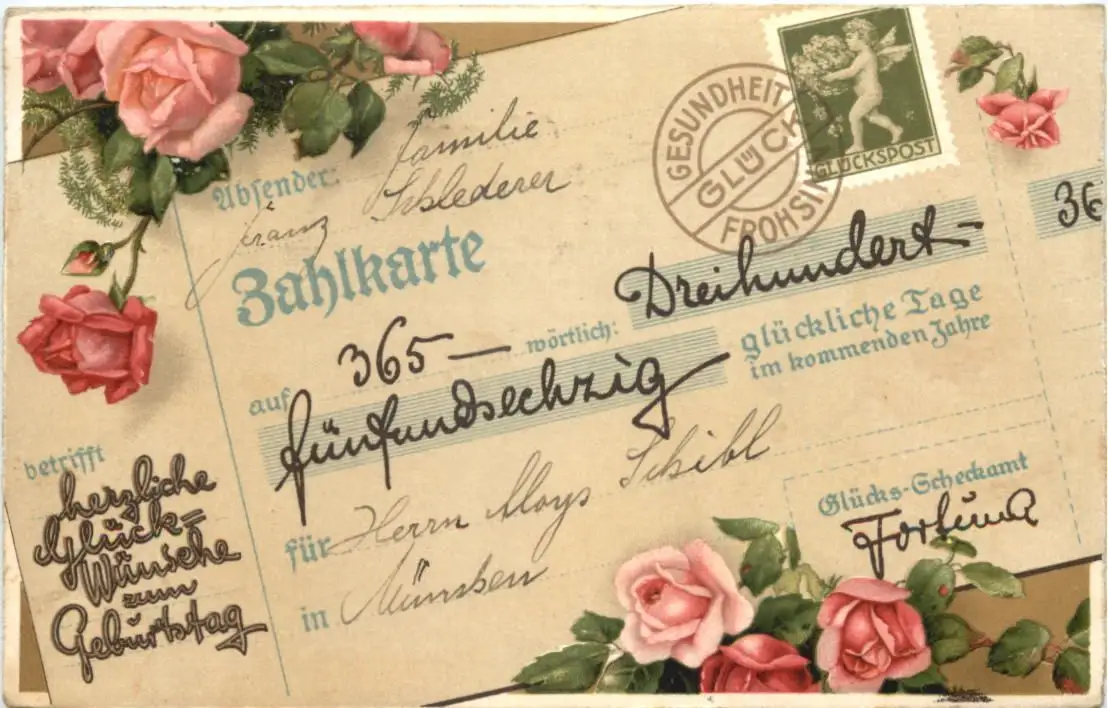 Absender:
Familie
Franz Schlederer
Zahlkarte
GESUNDHEIT
GLÜCK
FROHSINN
GLÜCKSPOST
36
auf 365 — wörtlich: Dreihundert-
fünfundsechzig
glückliche Tage
im kommenden Jahre
für Herrn Aloys Schibl
in München
betrifft
herzliche
Glück=
Wünsche
zum
Geburtstag
Glücks-Scheckamt
Fortuna